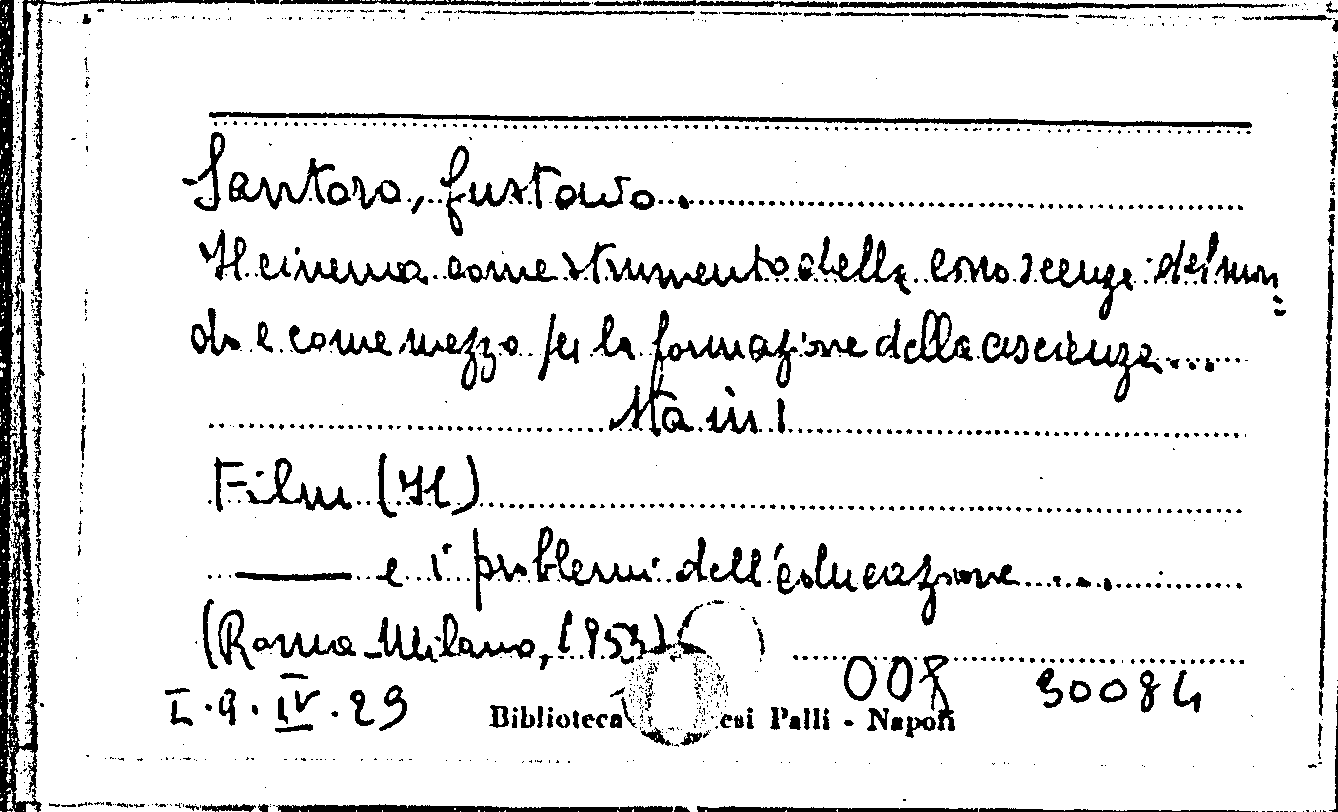 Santoro, Gustavo.
Il cinema come strumento della conoscenza del mon=
do e come mezzo per la formazione della coscienza....
Sta in!
Film (Il)
——— e i problemi dell'educazione....
(Roma-Milano, 1953)
I.9.IV.29
008 30084
Biblioteca esi Palli - Napoli